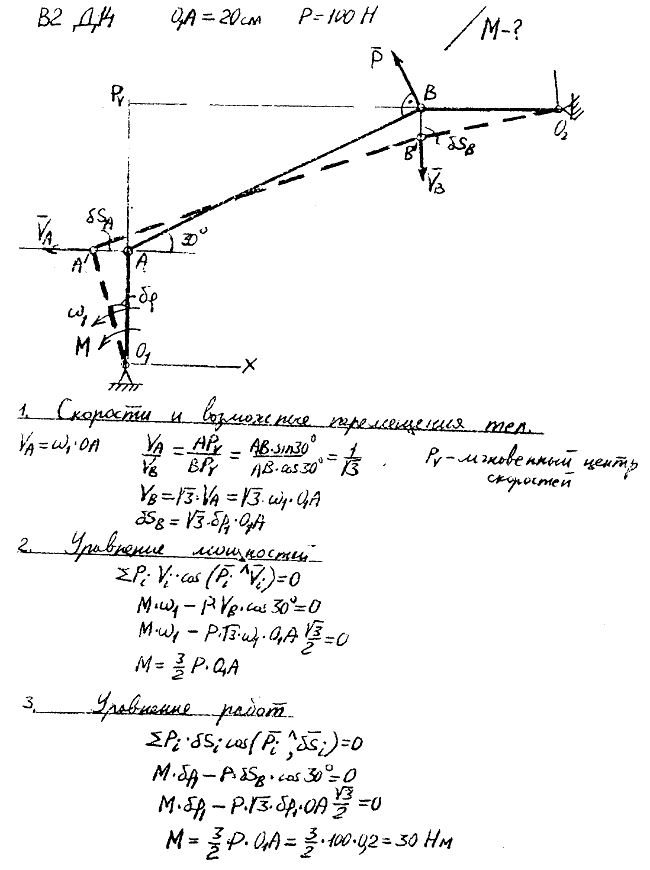 В2 Д14 O₁A = 20 см P = 100 Н M-?
P̄
Pᵥ
B
O₂
B' δS_B
V̄_B
V̄_A δS_A
30°
A' A
ω₁ δφ
M
O₁
X
1. Скорости и возможные перемещения тел.
V_A = ω₁·OA V_A/V_B = APᵥ/BPᵥ = AB·sin30°/AB·cos30° = 1/√3 . Pᵥ - мгновенный центр
скоростей
V_B = √3·V_A = √3·ω₁·O₁A
δS_B = √3·δφ₁·O₁A
2. Уравнение мощностей
ΣPᵢ·Vᵢ·cos(P̄ᵢ ^ V̄ᵢ) = 0
M·ω₁ - P·V_B·cos30° = 0
M·ω₁ - P·√3·ω₁·O₁A √3/2 = 0
M = 3/2 P·O₁A
3. Уравнение работ
ΣPᵢ·δSᵢ cos(P̄ᵢ ^, δS̄ᵢ) = 0
M·δφ₁ - P·δS_B·cos30° = 0
M·δφ₁ - P·√3·δφ₁·OA √3/2 = 0
M = 3/2·P·O₁A = 3/2·100·0,2 = 30 Нм